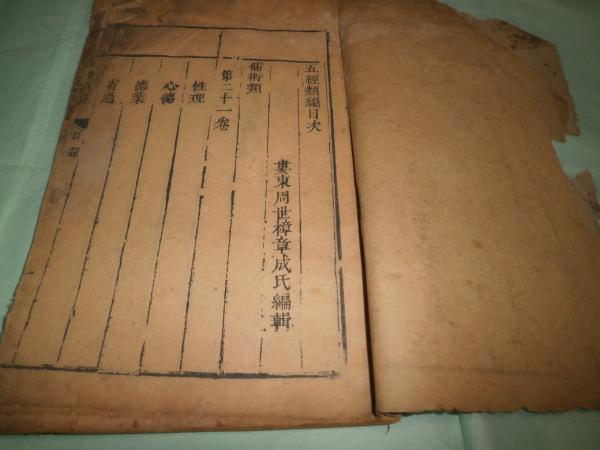 五經類編目次
婁東周世樟章成氏編輯
儒術類
第二十一卷
性理
心德
德業
目錄